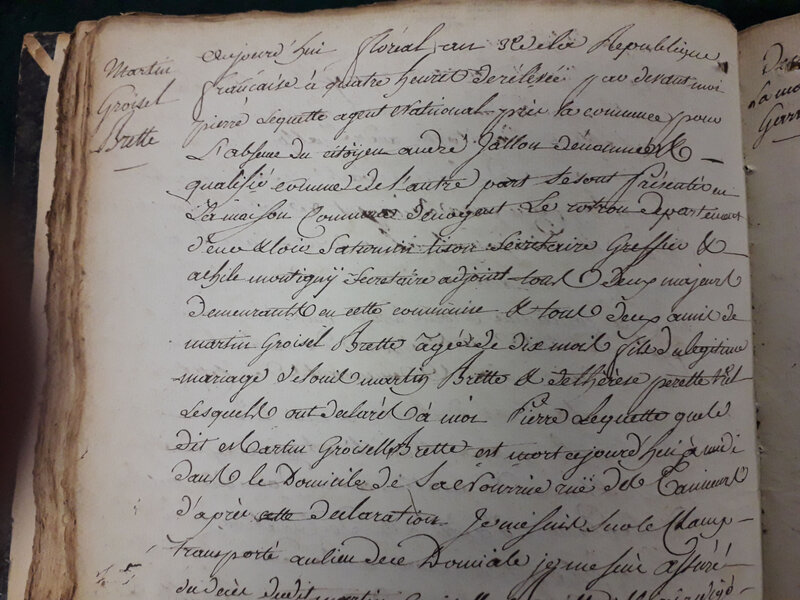 Martin
Groisel
Brette
aujourd'hui floréal an 3e de la Republique
française à quatre heures de rélévée par devant moi
pierre Lequette agent National près la commune pour
L'absence du citoyen andré Jallon dénommé &
qualifié comme de l'autre part se sont présentés en
La maison Commune de nogent Le rotrou departement
d'eure & loir Saturnin tison Sécrétaire Greffier &
achile montigny Secretaire adjoint tous deux majeurs
demeurants en cette commune & tous deux amis de
martin Groisel Brette agée de dix mois fils du legitime
mariage de louis martin Brette & de thérèse perette
Lesquels ont declarés à moi Pierre Lequette que le
dit Martin Groisel Brette est mort cejourd'hui à midi
dans le Domicile de Sa Nourrice ruë des Tanneurs
d'après cette declaration Je me suis sur le Champ
transporté au lieu de ce Domicile je me suis assuré
du décès dudit martin